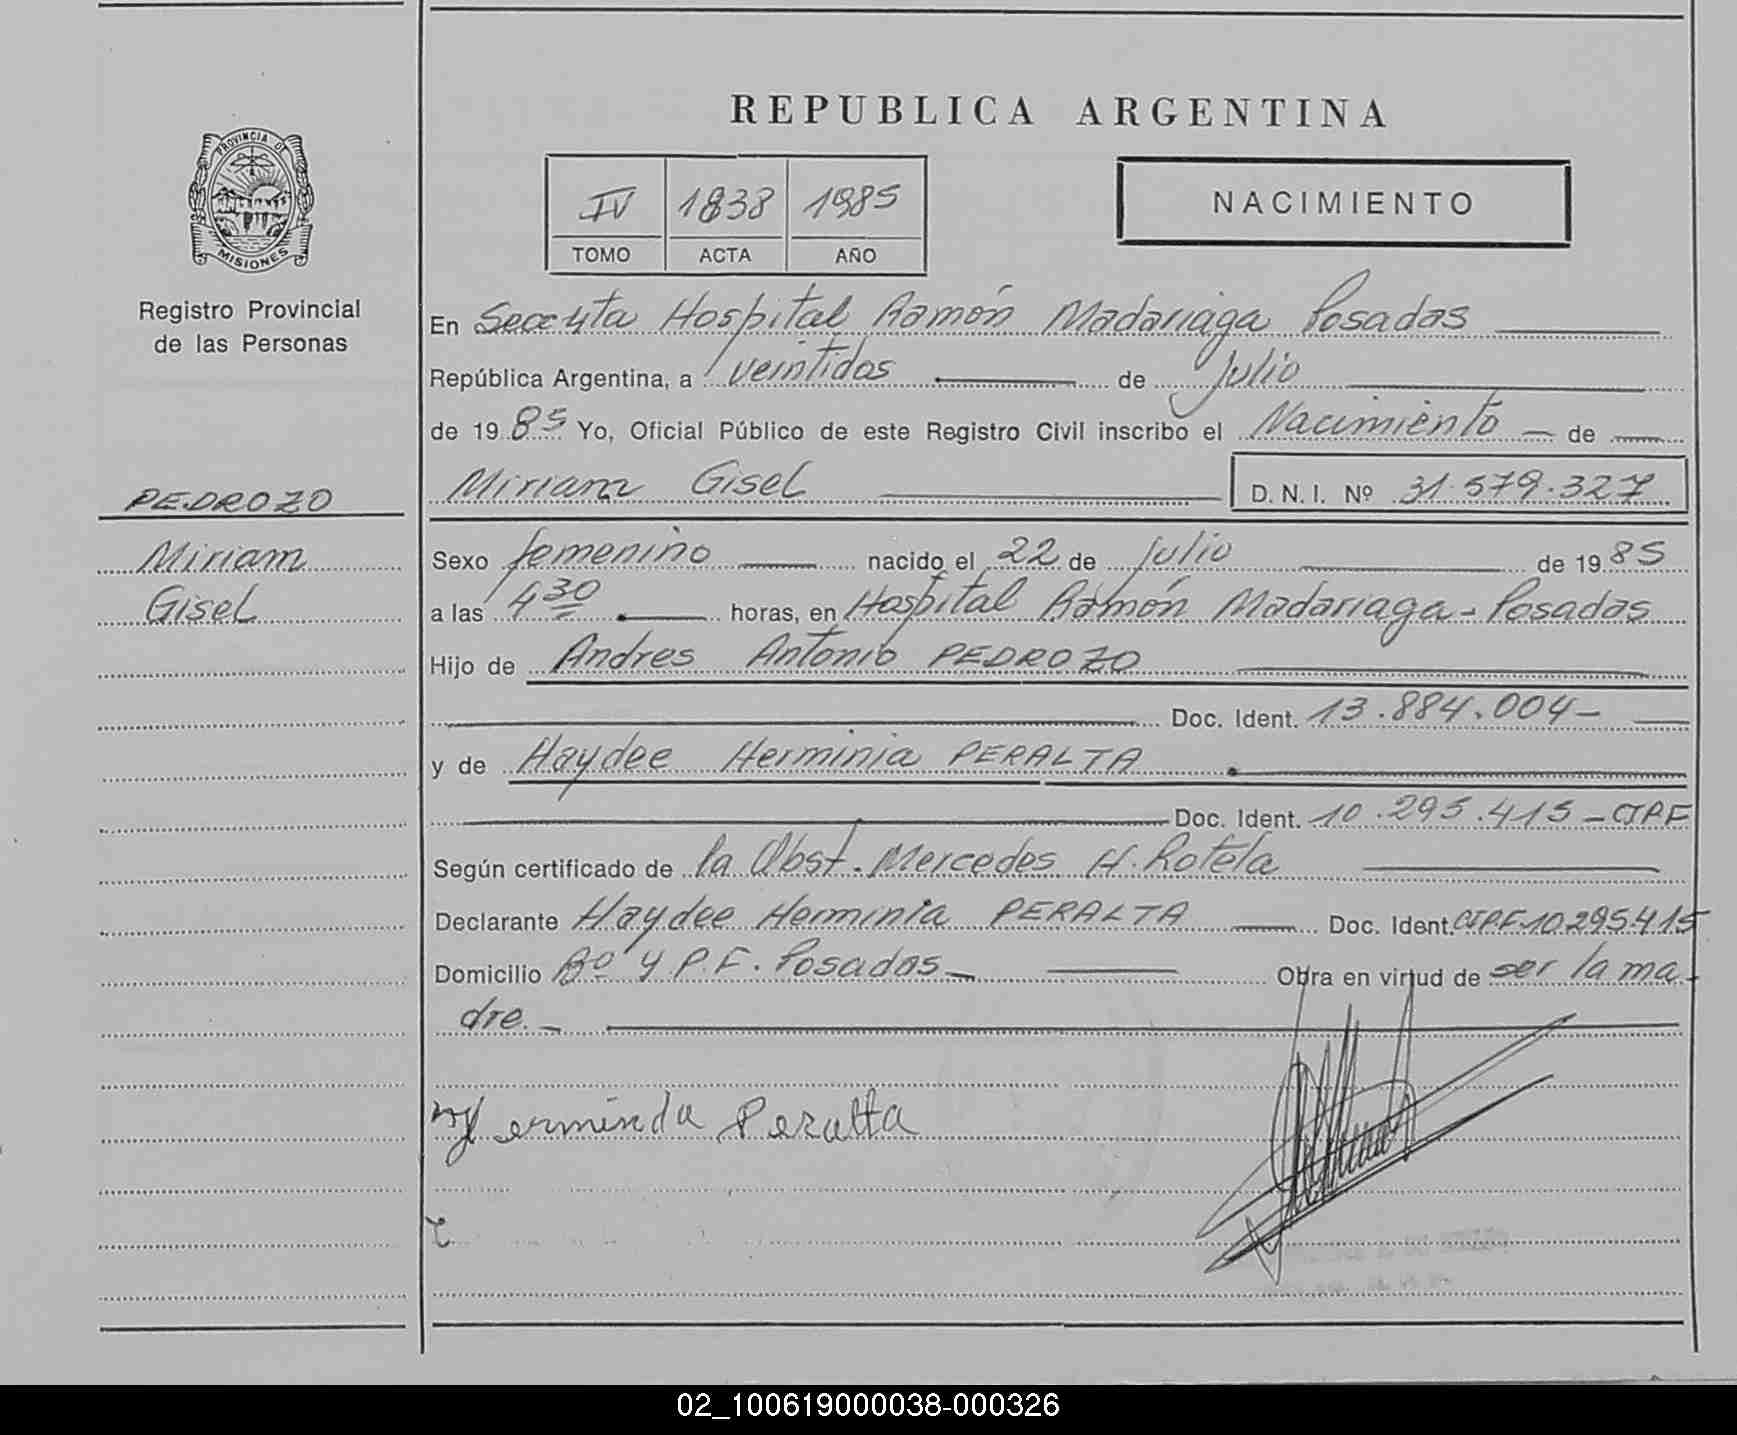 REPUBLICA ARGENTINA
PROVINCIA DE
MISIONES
Registro Provincial
de las Personas
IV 1838 1985
TOMO ACTA AÑO
NACIMIENTO
En Hospital Ramón Madariaga Posadas
República Argentina, a veintidos de Julio
de 1985 Yo, Oficial Público de este Registro Civil inscribo el Nacimiento de
Miriam Gisel D.N.I. Nº 31.579.327
PEDROZO
Miriam
Gisel
Sexo femenino nacido el 22 de Julio de 1985
a las 4 30 horas, en Hospital Ramón Madariaga - Posadas
Hijo de Andres Antonio PEDROZO
Doc. Ident. 13.884.004-
y de Haydee Herminia PERALTA
Doc. Ident. 10.295.415 - CIPF
Según certificado de la Obst. Mercedes H. Rotela
Declarante Haydee Herminia PERALTA Doc. Ident. CIPF 10.295.415
Domicilio Bº Y P.F. Posadas - Obra en virtud de ser la ma-
dre. -
Peralta
02_100619000038-000326